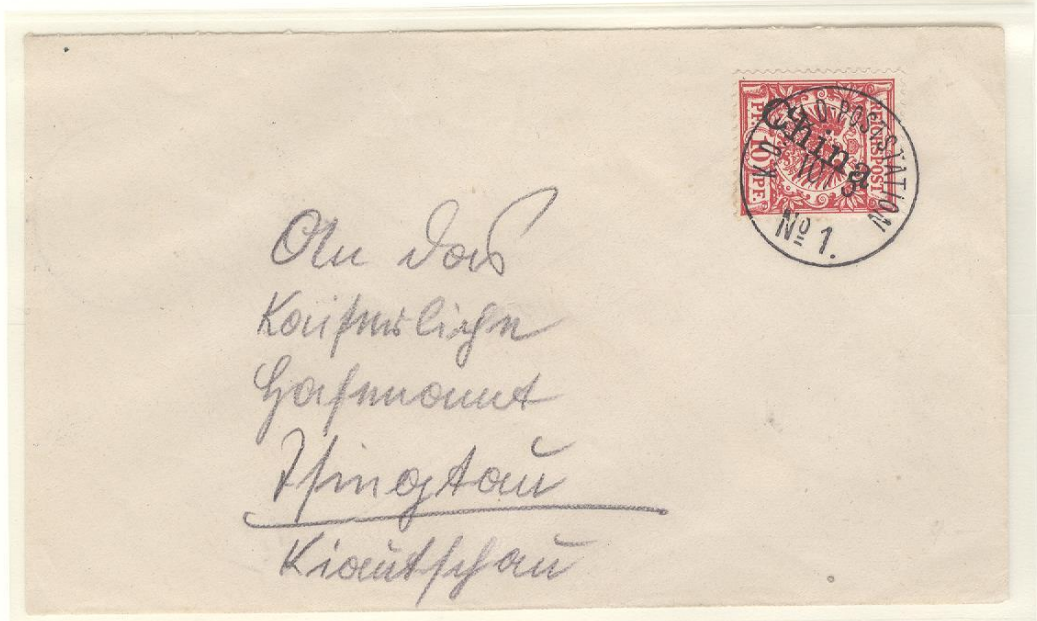 REICHSPOST
10 PF. 10 PF.
China
K.D. FELD-POSTSTATION
10/3
No 1.
An das
Kaiserliche
Hafenamt
Tsingtau
Kiautschau